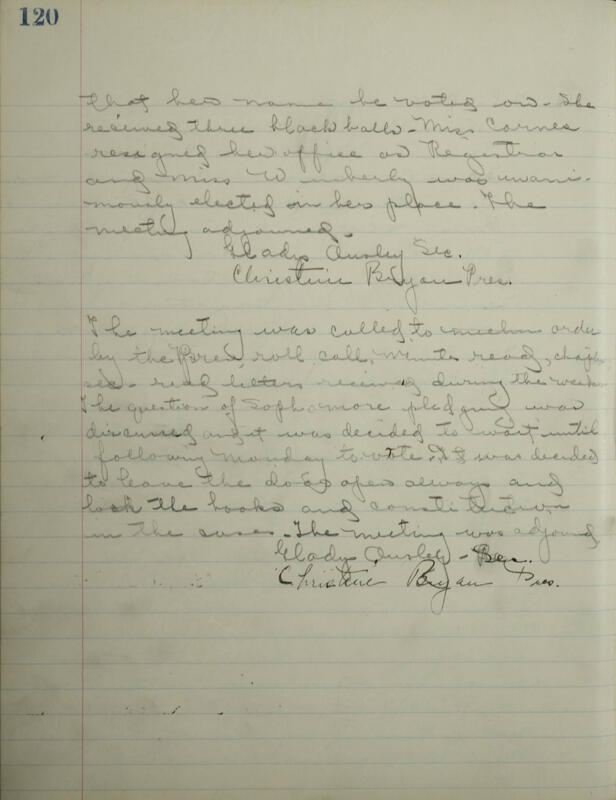 120
that her name be voted on. She
received three black balls. Miss Carnes
resigned her office as Registrar
and Miss Wimberly was unani-
mously elected in her place. The
meeting adjourned.
Gladys Ousley Sec.
Christine Bryan Pres.
The meeting was called to order
by the Pres, roll call, minutes read, chapt
sec. read letters received during the week.
The question of Sophamore pledging was
discussed and it was decided to wait until
following Monday to vote. It was decided
to leave the doors open always and
lock the books and constitution
in the . The meeting was adjourned
Gladys Ousley - Sec.
Christine Bryan Pres.